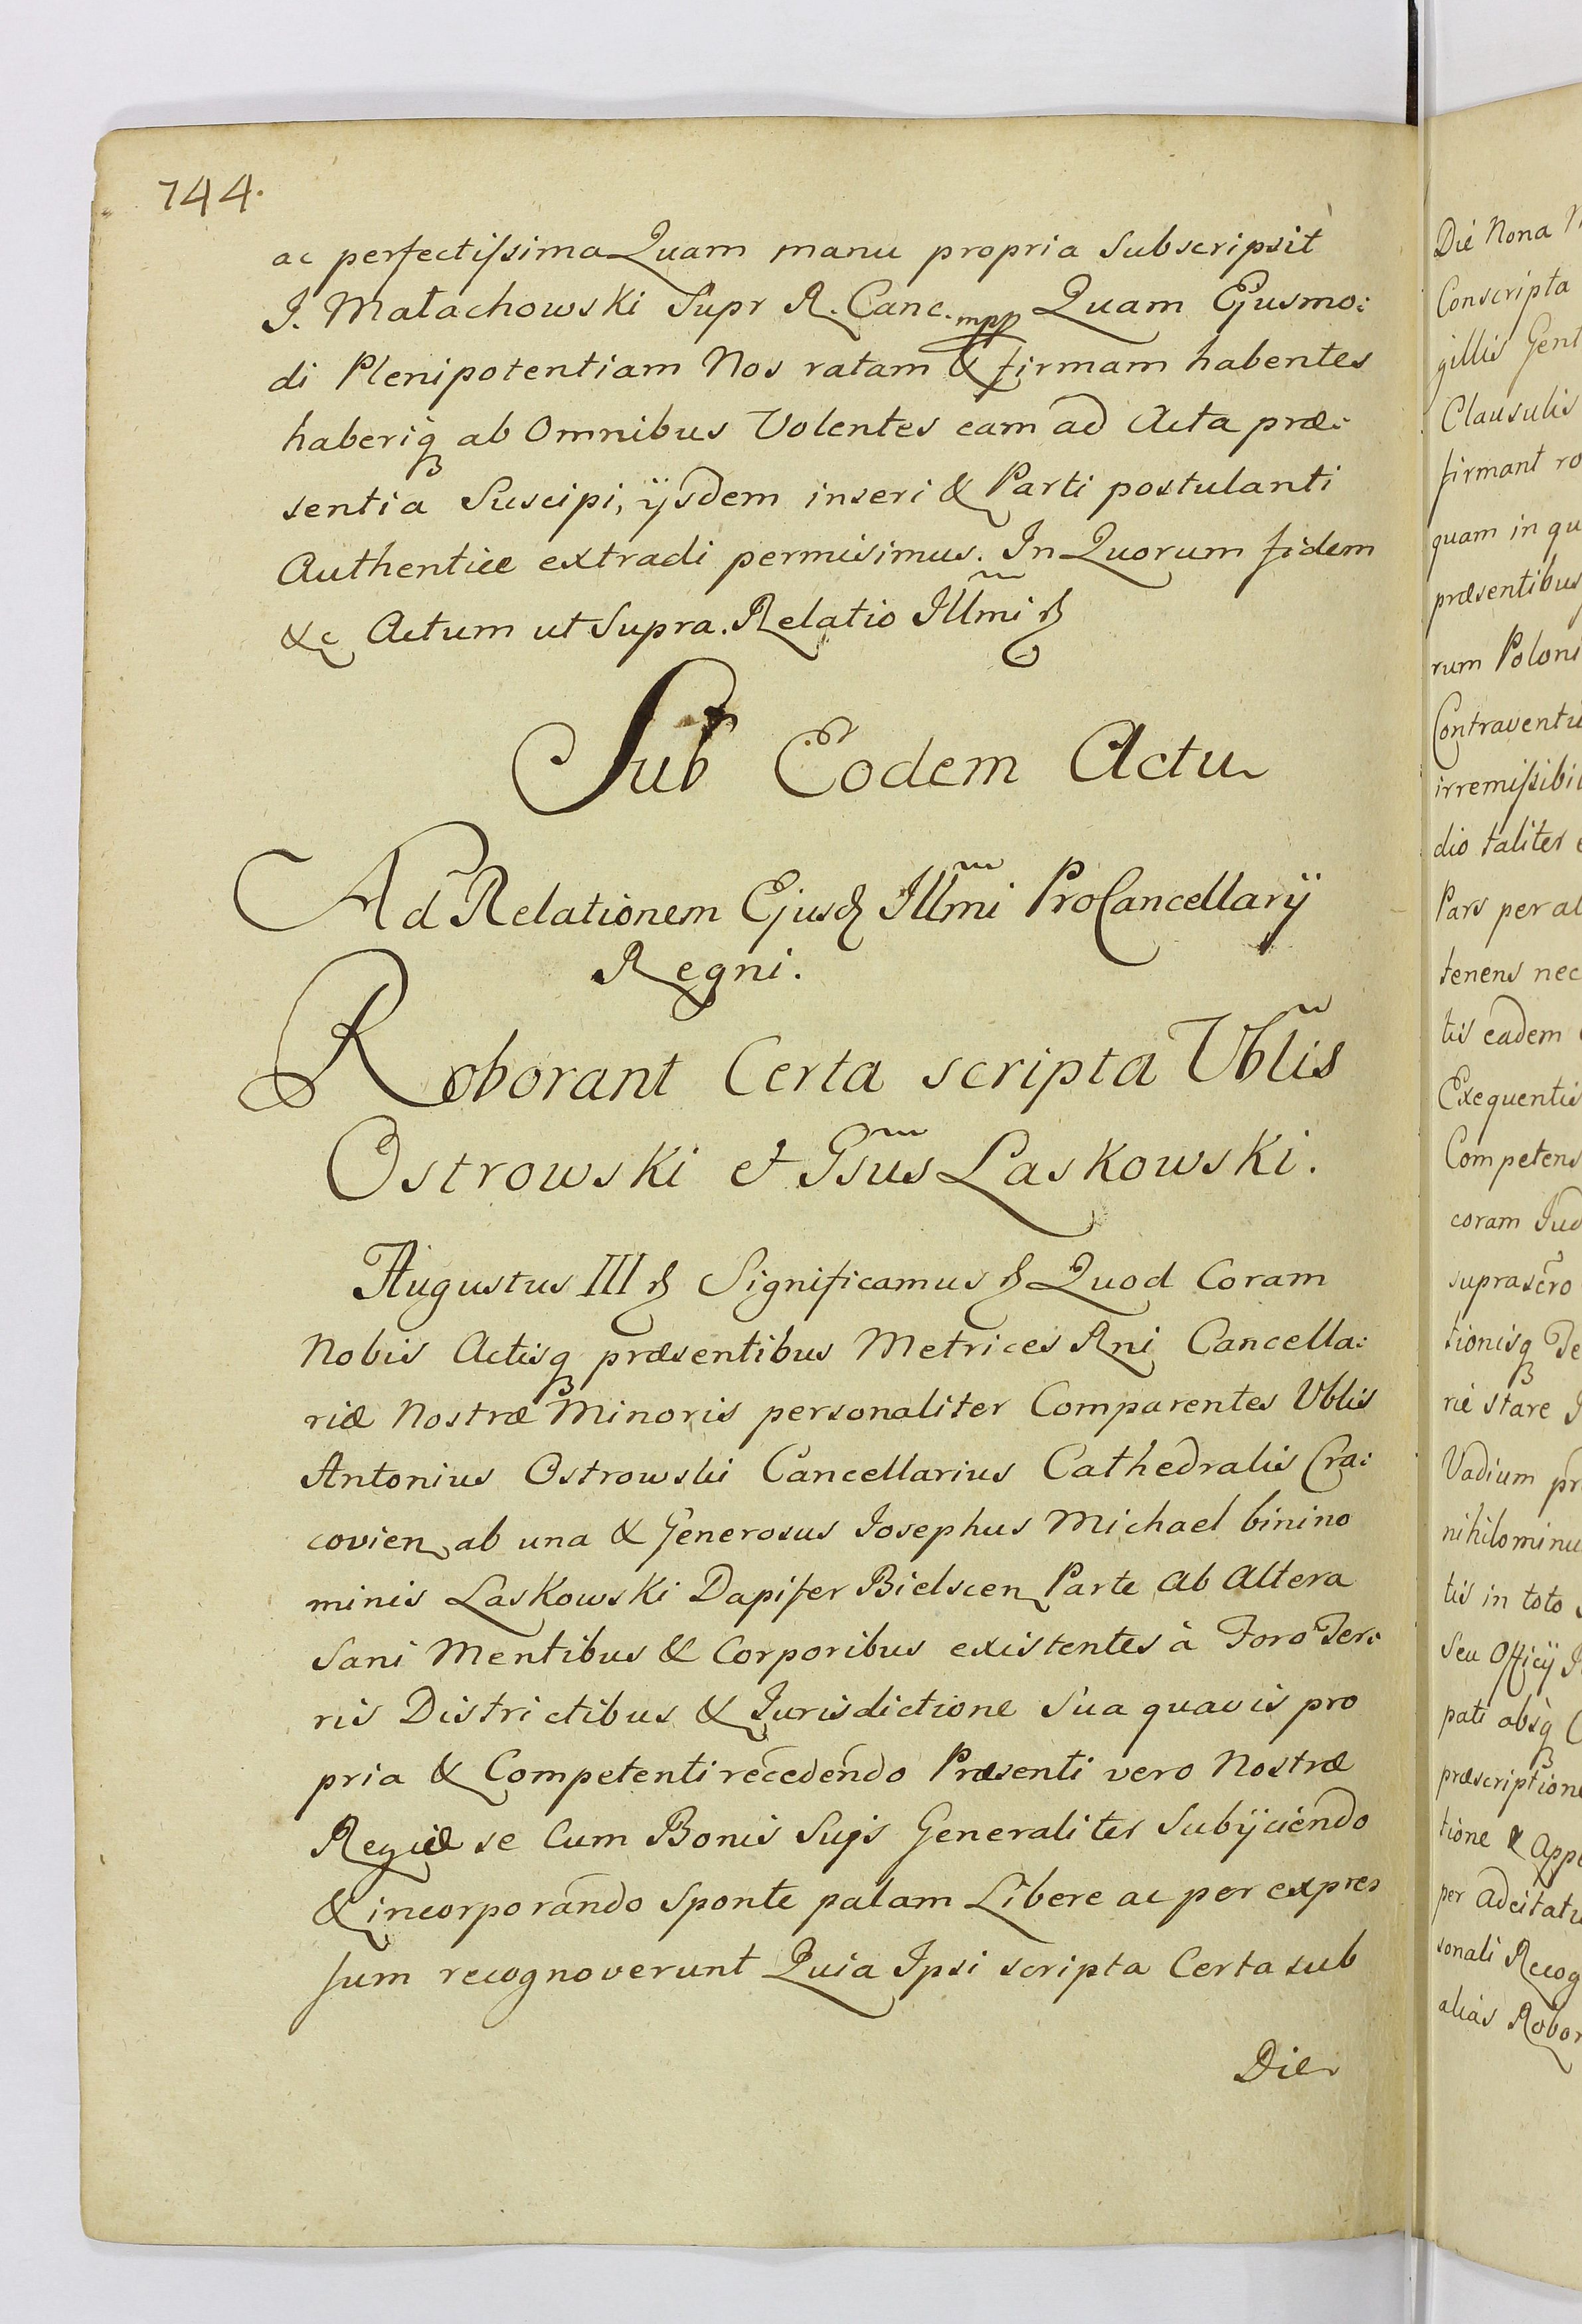 744.
ac perfectiſsima Quam manu propria Subscripsit
J. Małachowski Supr R. Canc. mpp Quam Ejusmo:
di Plenipotentiam Nos ratam & firmam habentes
haberiq ab Omnibus Volentes eam ad Acta præ:
sentia Suscipi, ijsdem inseri & Parti postulanti
Authentice extradi permisimus. In Quorum fidem
&c Actum ut Supra. Relatio Illm̃i
Sub Eodem Actu
Ad Relationem Ejusd Illm̃i ProCancellarij
Regni.
Roborant Certa scripta Vbl̃is
Ostrowski et Gsũs Laskowski.
Augustus III Significamus Quod Coram
Nobis Actisq præsentibus Metrices Rni Cancella:
riæ Nostræ Minoris personaliter Comparentes Vblis
Antonius Ostrowski Cancellarius Cathedralis Cra:
covien ab una & Generosus Josephus Michael binino
minis Laskowski Dapifer Bielscen Parte ab Altera
Sani Mentibus & Corporibus existentes à Foro Ter:
ris Districtibus & Jurisdictione Sua quavis pro
pria & Competenti recedendo Præsenti vero Nostræ
Regiæ se Cum Bonis Suis Generaliter Subijciendo
& incorporando Sponte palam Libere ac per expres
sum recognoverunt Quia Ipsi scripta Certa sub
Die
Die Nona
Conscripta
gillis Gent
Clausulis
firmant ro
quam in qu
præsentibus
rum Poloni
Contraventu
irremiſsibi
dio taliter
Pars per al
tenens nec
tis eadem
Exequentis
Competens
coram Jud
suprascr̃o
tionisq Te
rie stare
Vadium pr
nihilominu
tis in toto
Seu Officij
pati absq
præscription
tione & Appe
per adcitatu
sonali Recog
alias Robor